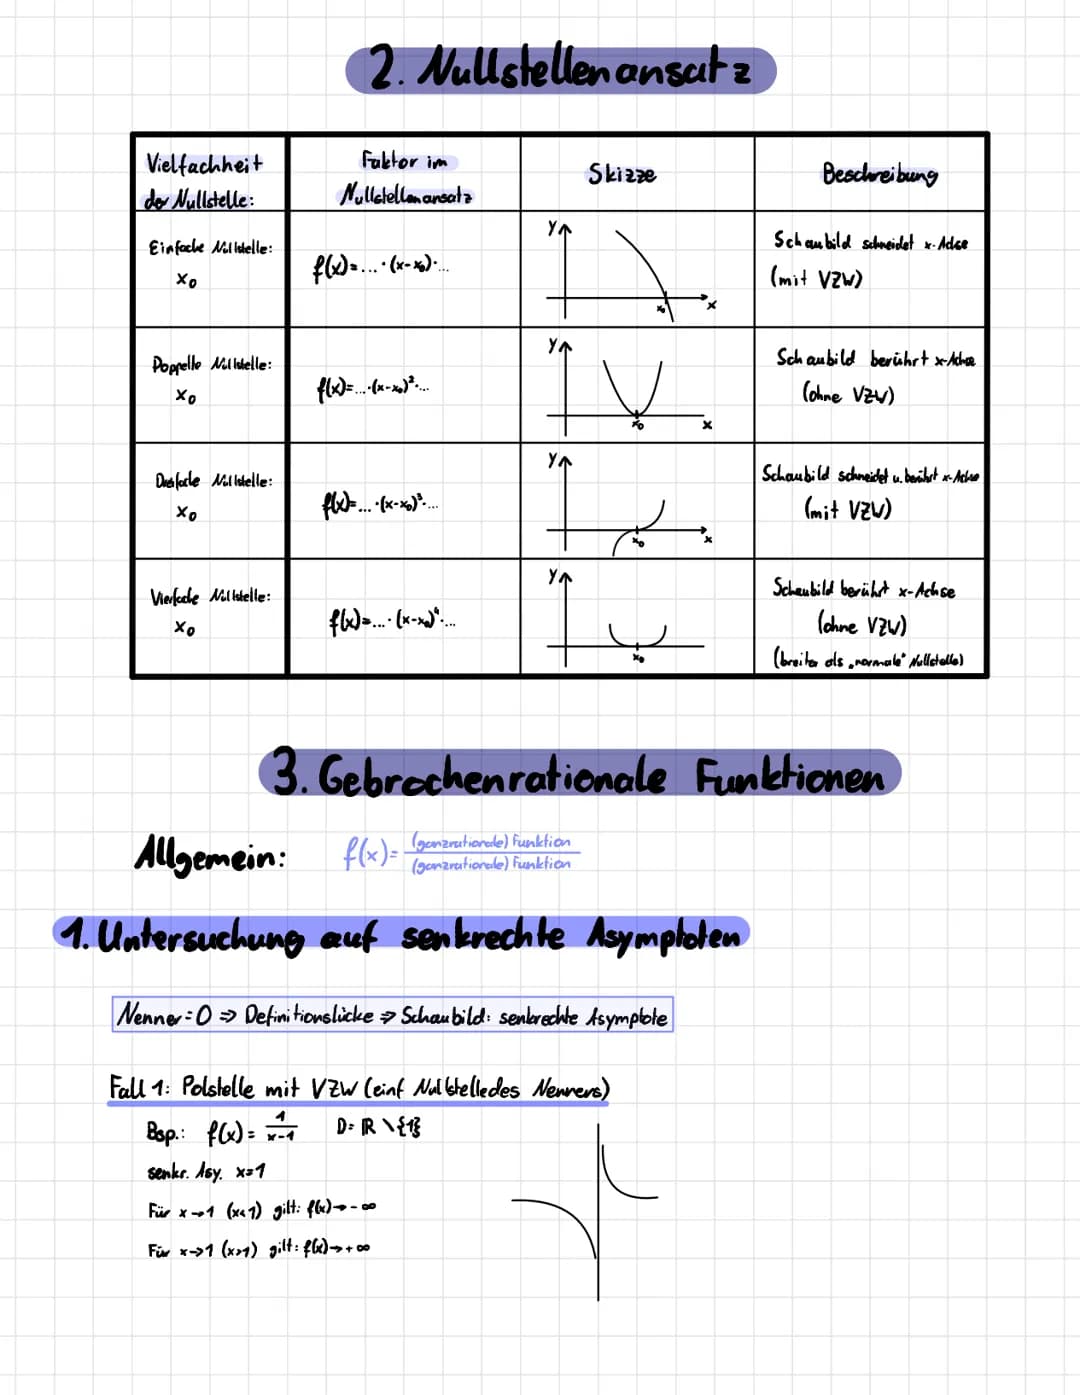 2. Nullstellenansatz
Vielfachheit
der Nullstelle:
Faktor im
Nullstellenansatz
Skizze
Beschreibung
Einfache Nullstelle:
x₀
f(x)=...·(x-x₀)·...
y
x₀
x
Schaubild schneidet x-Achse
(mit VZW)
Doppelte Nullstelle:
x₀
f(x)=...·(x-x₀)²·...
y
x₀
x
Schaubild berührt x-Achse
(ohne VZW)
Dreifache Nullstelle:
x₀
f(x)=...·(x-x₀)³·...
y
x₀
x
Schaubild schneidet u. berührt x-Achse
(mit VZW)
Vierfache Nullstelle:
x₀
f(x)=...·(x-x₀)⁴·...
y
x₀
Schaubild berührt x-Achse
(ohne VZW)
(breiter als „normale" Nullstelle)
3. Gebrochenrationale Funktionen
Allgemein: f(x)= (ganzrationale) Funktion
(ganzrationale) Funktion
1. Untersuchung auf senkrechte Asymptoten
Nenner=0 ⇒ Definitionslücke ⇒ Schaubild: senkrechte Asymptote
Fall 1: Polstelle mit VZW (einf Nullstelle des Nenners)
Bsp.: f(x)= 1/(x-1) D= ℝ \{1}
senkr. Asy. x=1
Für x→1 (x<1) gilt: f(x)→-∞
Für x→1 (x>1) gilt: f(x)→+∞